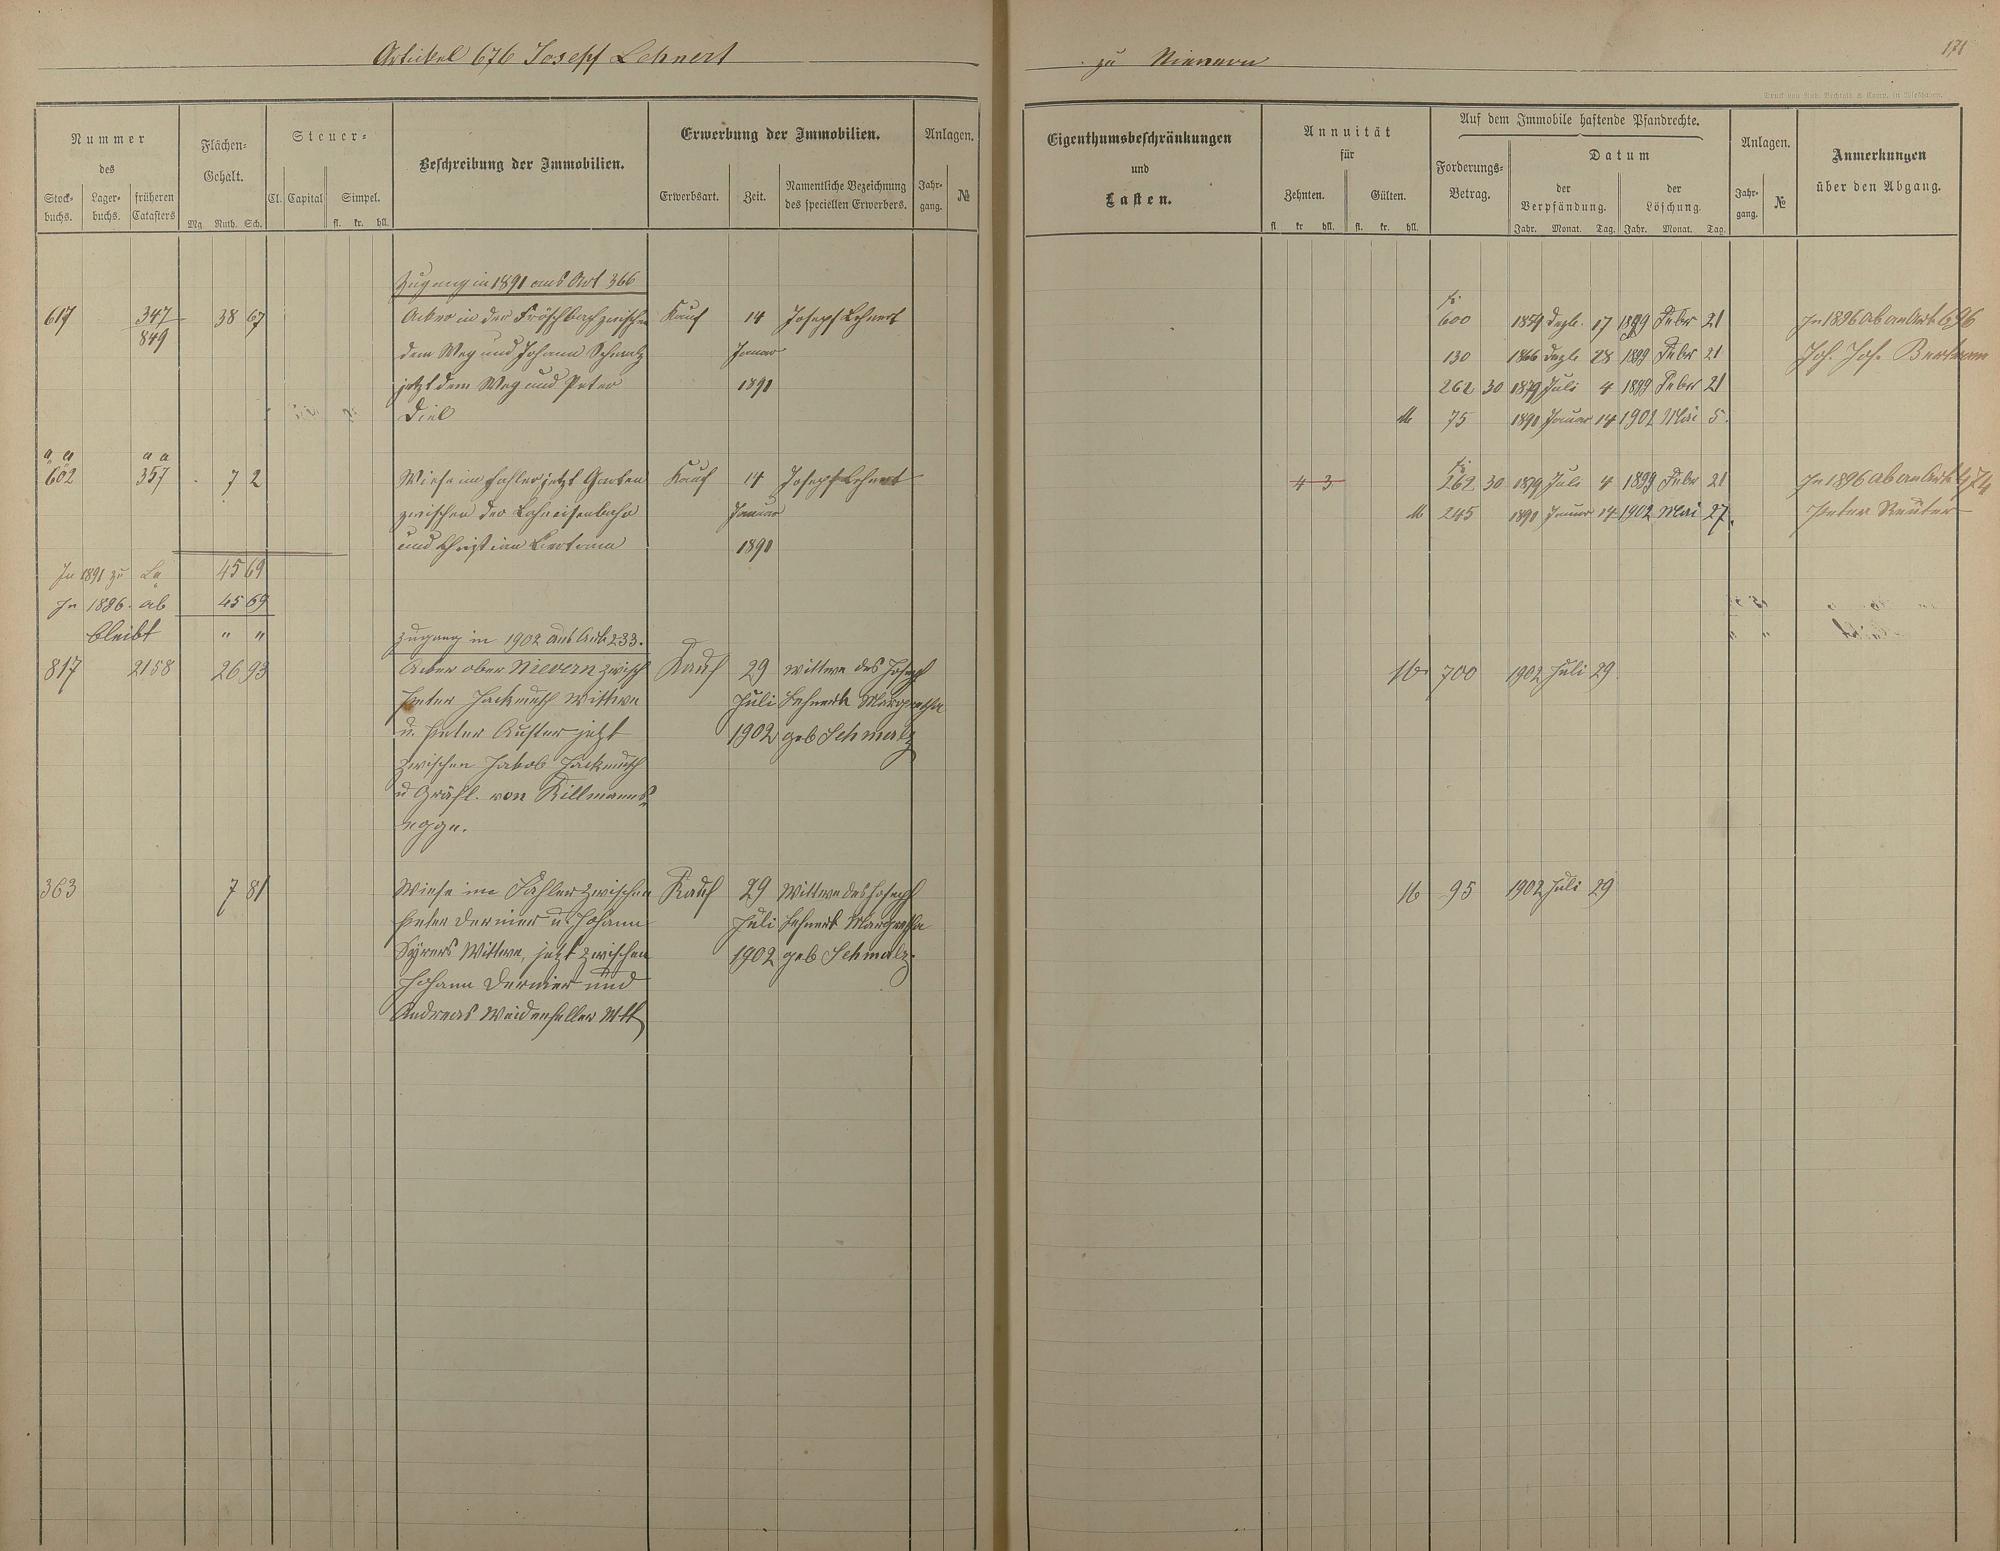 Artikel 676 Joseph Lehnert
zu Nievern
171
Druck von Rud. Bechtold & Comp. in Wiesbaden.
Nummer
des
Stock-buchs. Lager-buchs. früheren Catasters
Flächen-Gehalt.
Mg Ruth. Sch.
Steuer-
Cl. Capital Simpel.
fl. kr. hll.
Beschreibung der Immobilien.
Erwerbung der Immobilien.
Erwerbsart. Zeit. Namentliche Bezeichnung des speciellen Erwerbers.
Anlagen.
Jahr-gang. №
Eigenthumsbeschränkungen
und
Lasten.
Annuität
für
Zehnten. Gülten.
fl kr hll. fl. kr. hll.
Auf dem Immobile haftende Pfandrechte.
Forderungs-Betrag.
Datum
der Verpfändung. der Löschung.
Jahr. Monat. Tag. Jahr. Monat. Tag.
Anlagen.
Jahr-gang. №
Anmerkungen
über den Abgang.
Zugang in 1891 aus Art 366
617 347 38 67 Acker in der Fröschbach zwischen Kauf 14 Joseph Lehnert
849
dem Weg und Johann Schmalz Januar
jetzt dem Weg und Peter 1891
Diel
fl.
600 1859 Dezb. 17 1899 Febr 21 In 1896 ab an Art 696
130 1866 Dezb 28 1899 Febr 21 Joh. Jos. Bertram
262 30 1879 Juli 4 1899 Febr 21
M 75 1891 Januar 14 1902 Mai 5.
a a a a
602 357 7 2 Wiese im Fahler jetzt Garten Kauf 14 Joseph Lehnert
zwischen der Lahneisenbahn Januar
und Christian Bertram 1891
fl.
4 3 262 30 1879 Juli 4 1899 Febr 21 In 1896 ab an Art 474
M 245 1891 Januar 14 1902 Mai 27. Peter Reuter
In 1891 zu 45 69
In 1896 ab 45 69
bleibt " "
Zugang in 1902 aus Art 233.
817 2158 26 93 Acker ober Nievern zwisch Kauf 29 Wittwe des Joseph
Peter Hackmesch Wittwe Juli Lehnert Margretha
u. Peter Auster jetzt 1902 geb Schmalz
zwischen Jakob Hackmesch
u Gräfl. von Killmanns
egge.
M 700 1902 Juli 29
363 7 81 Wiese im Fahler zwischen Kauf 29 Wittwe des Joseph
Peter Dernier u. Johann Juli Lehnert Margretha
Wittwe, jetzt zwischen 1902 geb Schmalz.
Johann Dernier und
Andreas Weidenfeller Wtt
M 95 1902 Juli 29